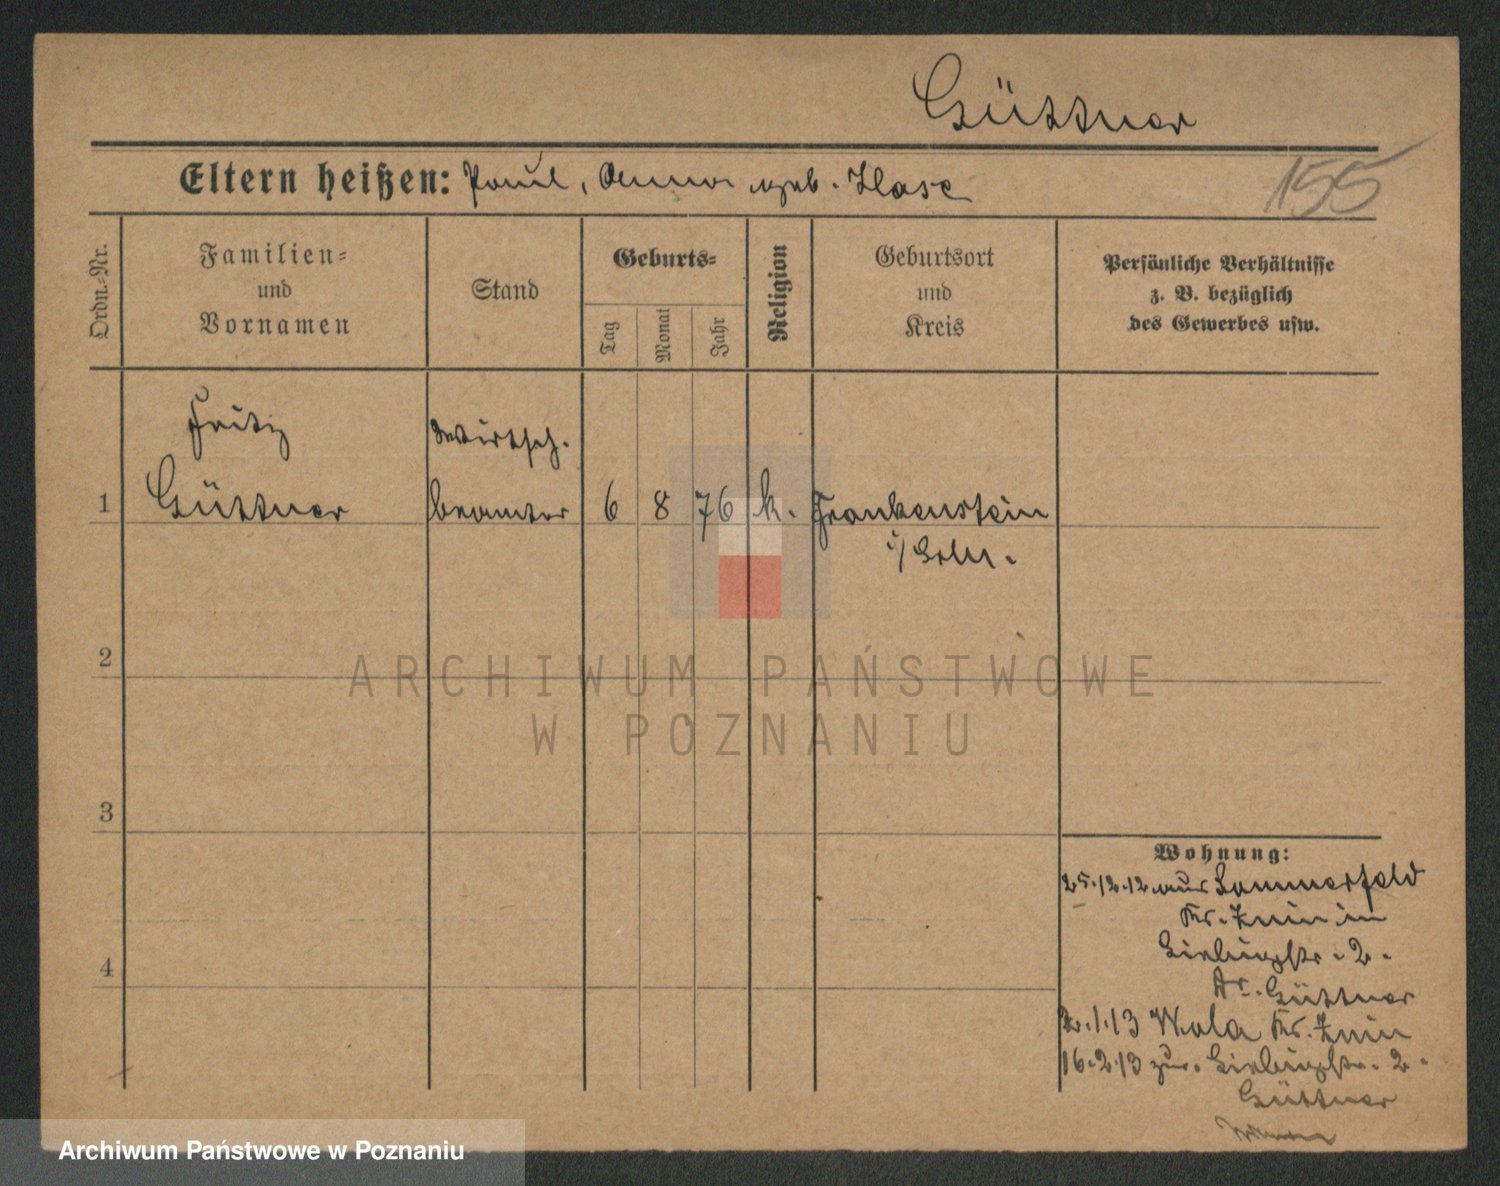 Güttner
Eltern heißen: Paul, Anna geb. Hase
155
Ordn.-Nr.
Familien-
und
Vornamen
Stand
Geburts-
Tag
Monat
Jahr
Religion
Geburtsort
und
Kreis
Persönliche Verhältnisse
z. B. bezüglich
des Gewerbes usw.
Fritz
Wirtsch.
1
Güttner
beamter
6
8
76
k.
Frankenstein
i/Schl.
2
ARCHIWUM PAŃSTWOWE
W POZNANIU
3
Wohnung:
25.12.12 aus Sommerfeld
Kr. Znin in
2.
4
Güttner
2.1.13 Wola Kr. Znin
16.2.13 zur. 2.
Güttner
Archiwum Państwowe w Poznaniu